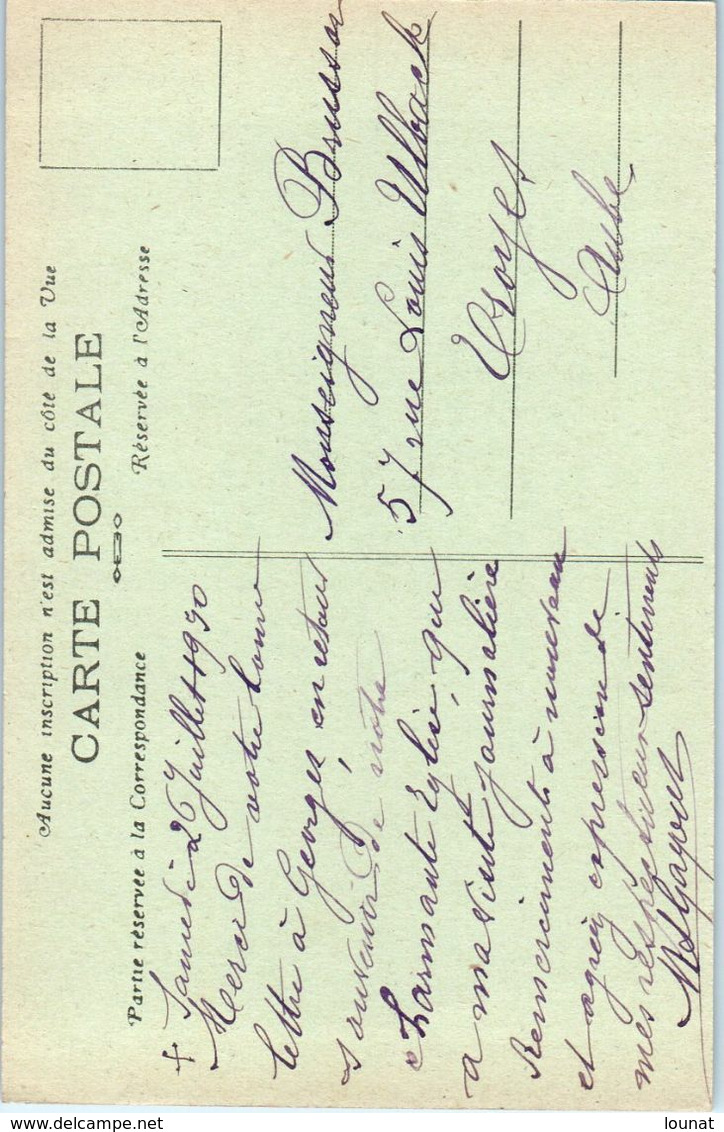 Aucune inscription n'est admise du côté de la Vue
CARTE POSTALE
Partie réservée à la Correspondance
Réservée à l'Adresse
+ Samedi 26 Juillet 1930
Merci de votre bonne
lettre à Georges, en retour
souvenir de notre
charmante Eglise, qui
a ma visite journalière
Remerciements à nouveau
et agréez expression de
mes respectueux sentiments
Monseigneur
57 rue Louis Ulbach
Troyes
Aube
lounat